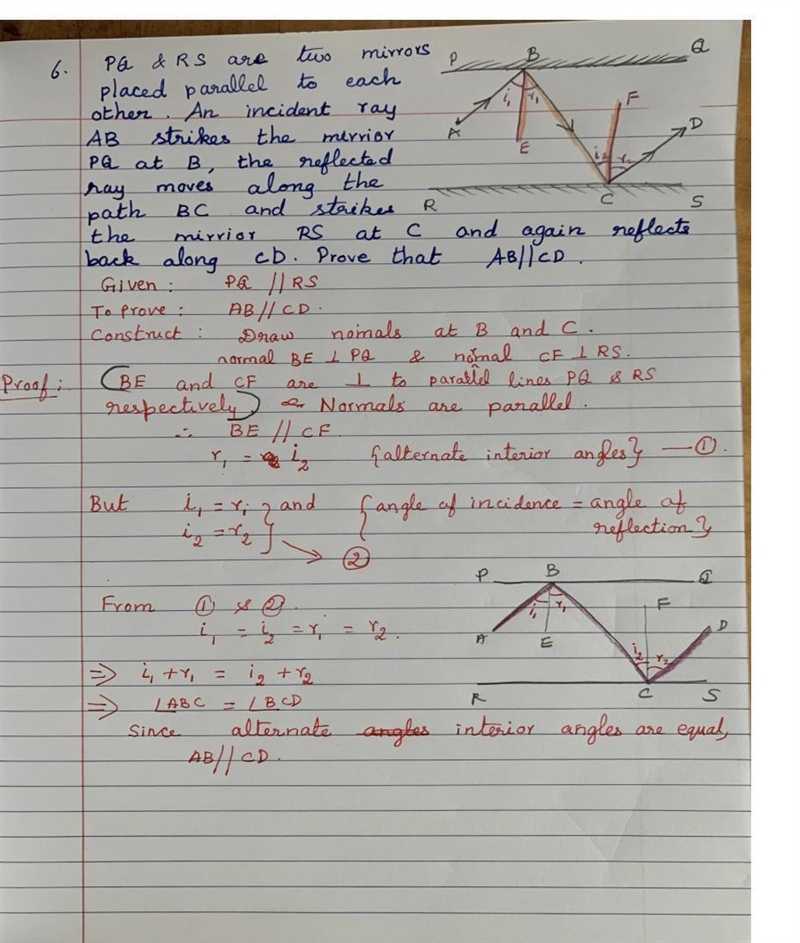 6. PQ & RS are two mirrors
placed parallel to each
other. An incident ray
AB strikes the mirrior
PQ at B, the reflected
ray moves along the
path BC and strikes
the mirrior RS at C and again reflects
back along CD. Prove that AB//CD.
P B Q
i₁ r₁ F
A E D
i₂ r₂
R C S
Given : PQ // RS
To Prove : AB // CD.
Construct : Draw normals at B and C.
normal BE ⊥ PQ & normal CF ⊥ RS.
Proof : (BE and CF are ⊥ to parallel lines PQ & RS
respectively) Normals are parallel.
∴ BE // CF.
r₁ = i₂ {alternate interior angles} — ①.
But i₁ = r₁ } and {angle of incidence = angle of
i₂ = r₂ } { reflection}
→ ②
From ① & ②.
i₁ = i₂ = r₁ = r₂.
⇒ i₁ + r₁ = i₂ + r₂
⇒ ∠ABC = ∠BCD
P B Q
i₁ r₁ F
A E D
i₂ r₂
R C S
Since alternate angles interior angles are equal,
AB // CD.